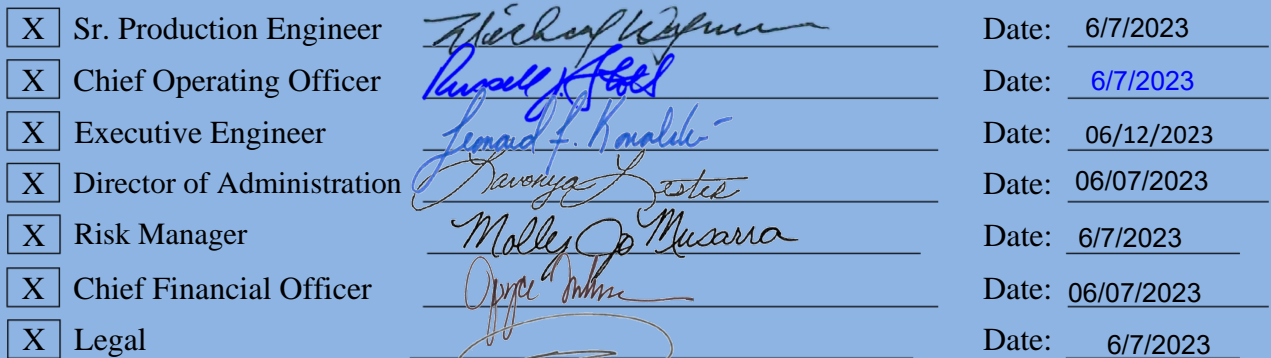 X Sr. Production Engineer Michael Date: 6/7/2023
X Chief Operating Officer Russell J. Date: 6/7/2023
X Executive Engineer Leonard F. Date: 06/12/2023
X Director of Administration Lavonya Lester Date: 06/07/2023
X Risk Manager Molly Jo Musarra Date: 6/7/2023
X Chief Financial Officer Joyce Date: 06/07/2023
X Legal Date: 6/7/2023